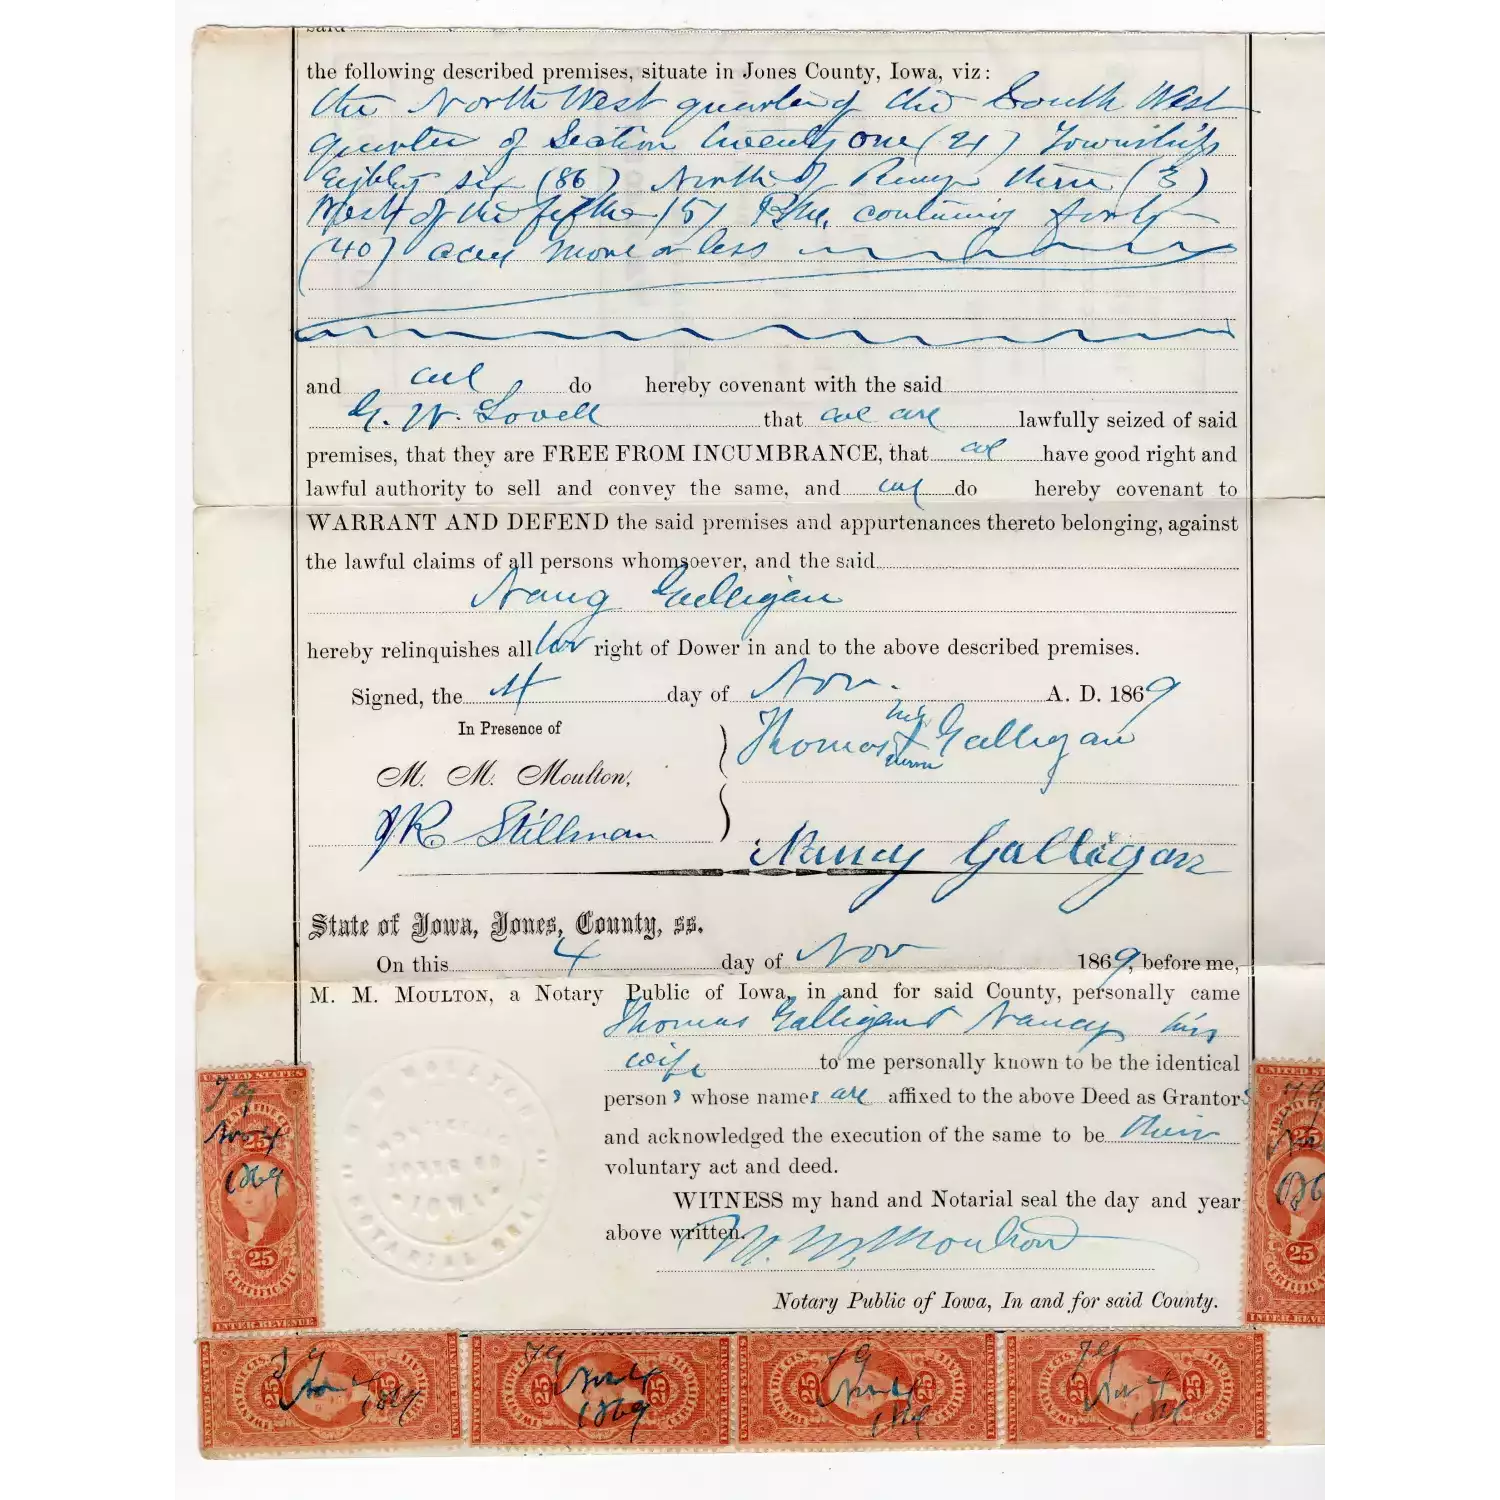 said
the following described premises, situate in Jones County, Iowa, viz:
the North West quarter of the South West
quarter of Section twenty one (21) Township
Eighty six (86) North of Range three (3)
West of the fifth (5) P.M. containing forty
(40) acres more or less
and we do hereby covenant with the said
G. W. Lovell that we are lawfully seized of said
premises, that they are FREE FROM INCUMBRANCE, that we have good right and
lawful authority to sell and convey the same, and we do hereby covenant to
WARRANT AND DEFEND the said premises and appurtenances thereto belonging, against
the lawful claims of all persons whomsoever, and the said
Nancy Galligan
hereby relinquishes all her right of Dower in and to the above described premises.
Signed, the 4 day of Nov. A. D. 1869
In Presence of
his
Thomas + Galligan
mark
M. M. Moulton,
JR Stillman
Nancy Galligan
State of Iowa, Jones, County, ss.
On this 4 day of Nov 1869, before me,
M. M. MOULTON, a Notary Public of Iowa, in and for said County, personally came
Thomas Galligan & Nancy his
wife to me personally known to be the identical
persons whose names are affixed to the above Deed as Grantors
and acknowledged the execution of the same to be their
voluntary act and deed.
WITNESS my hand and Notarial seal the day and year
above written.
M. M. Moulton
Notary Public of Iowa, In and for said County.
M M MOULTON
JONES CO
IOWA
NOTARIAL SEAL
UNITED STATES
TWENTY FIVE CTS.
25
TG
Nov 4
1869
25
CERTIFICATE
INTER. REVENUE
UNITED STATES
25
TG
25
CERTIFICATE
INTER. REVENUE
TG
Nov 4
1869
25 25
TG
Nov 4
1869
25 25
TG
Nov 4
1869
25 25
TG
Nov 4
1869
25 25